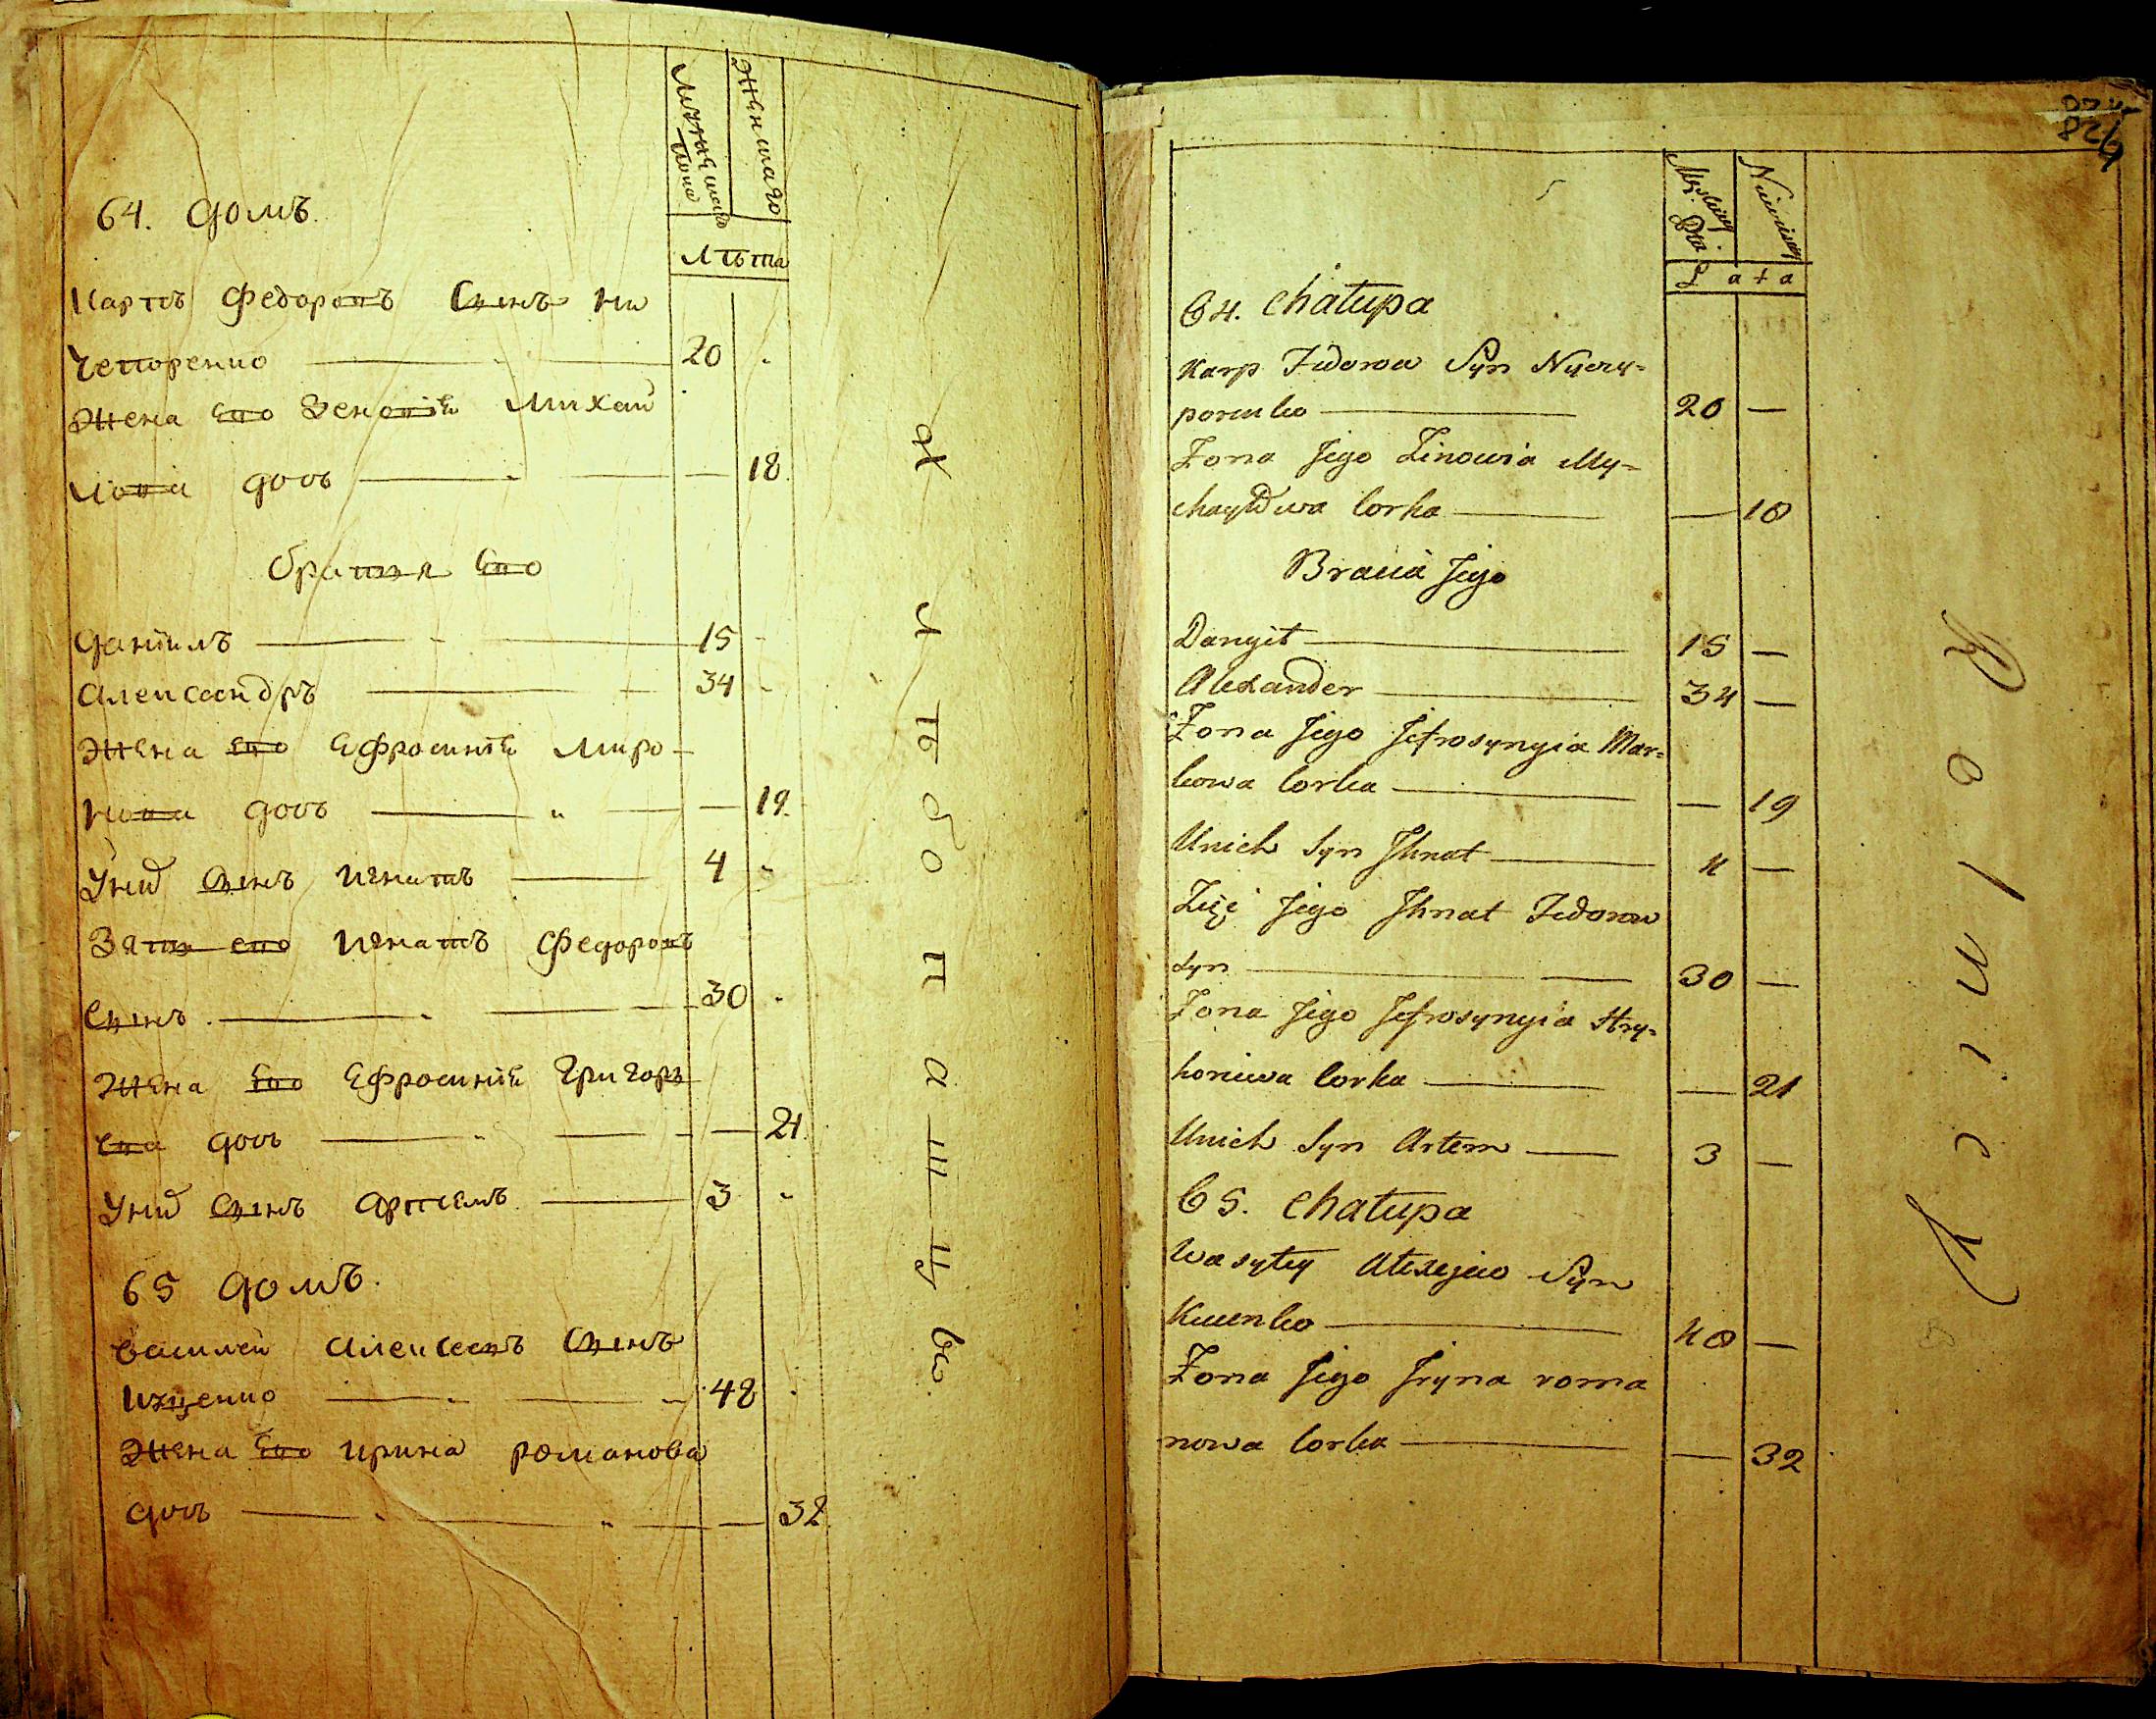 Мужеска
пола
Женшаго
Лѣта
64. домъ.
Карпъ Федоровъ Сынъ Ни
чепоренко 20
Жена Его Зеновія Михай
лова дочь 18
братья Его
Даніилъ 15
Александръ 34
Жена Его Ефросинія Марко
кова дочь 19.
У нихъ Сынъ Игнатъ 4
Зять его Игнатъ Федоровъ
Сынъ. 30
Жена Его Ефросинія Григорь
ева дочь 21.
У нихъ Сынъ Артемъ 3
65 домъ.
Василей Алексеевъ Сынъ
Куценко 48
Жена Его Ирина романова
дочь 32
х л ѣ б о п а ш ц ы.
728
Męskiey
Płci
L a t a
64. Chałupa
Karp Fedorow Syn Nyczy-
porenko 20 —
Żona Jego Zinowia My-
chayłowa Corka — 18
Bracia Jego
Danyił 15 —
Alexander 34 —
Żona Jego Jefrosynyia Mar-
kowa Corka — 19
Unich Syn Ihnat 4 —
Zięć Jego Ihnat Fedorow
Syn 30 —
Żona Jego Jefrosynyia Hry-
horiewa Corka — 21
Unich Syn Artem 3 —
65. Chałupa
Wasyley Alexejew Syn
Kucenko 48 —
Żona Jego Iryna roma
nowa Corka — 32
R o l n i c y